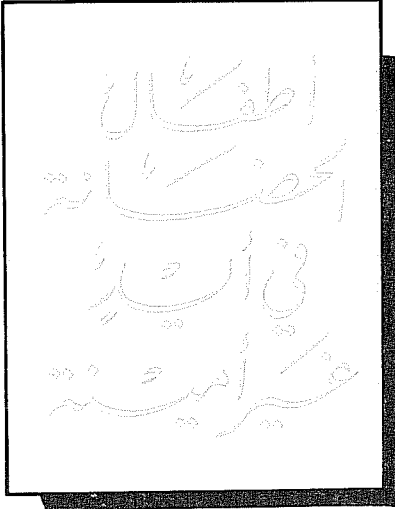 أطفال
الحضانة
في أيدٍ
غير أمينة